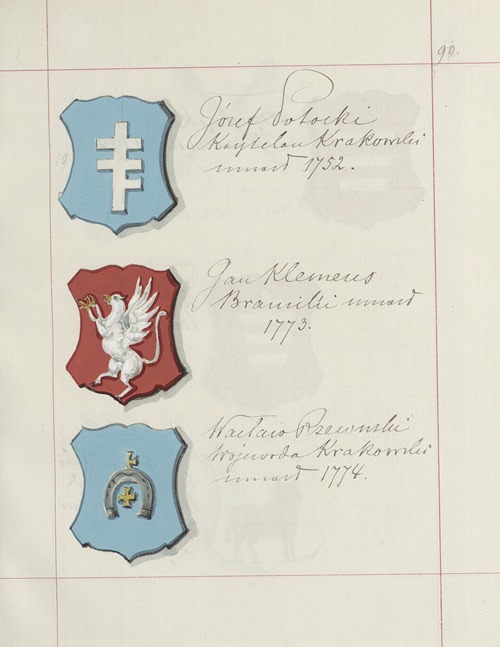 90.
Józef Potocki
Kasztelan Krakowski
umarł 1752.
Jan Klemens
Branicki umarł
1773.
Wacław Rzewuski
Wojewoda Krakowski
umarł 1774.